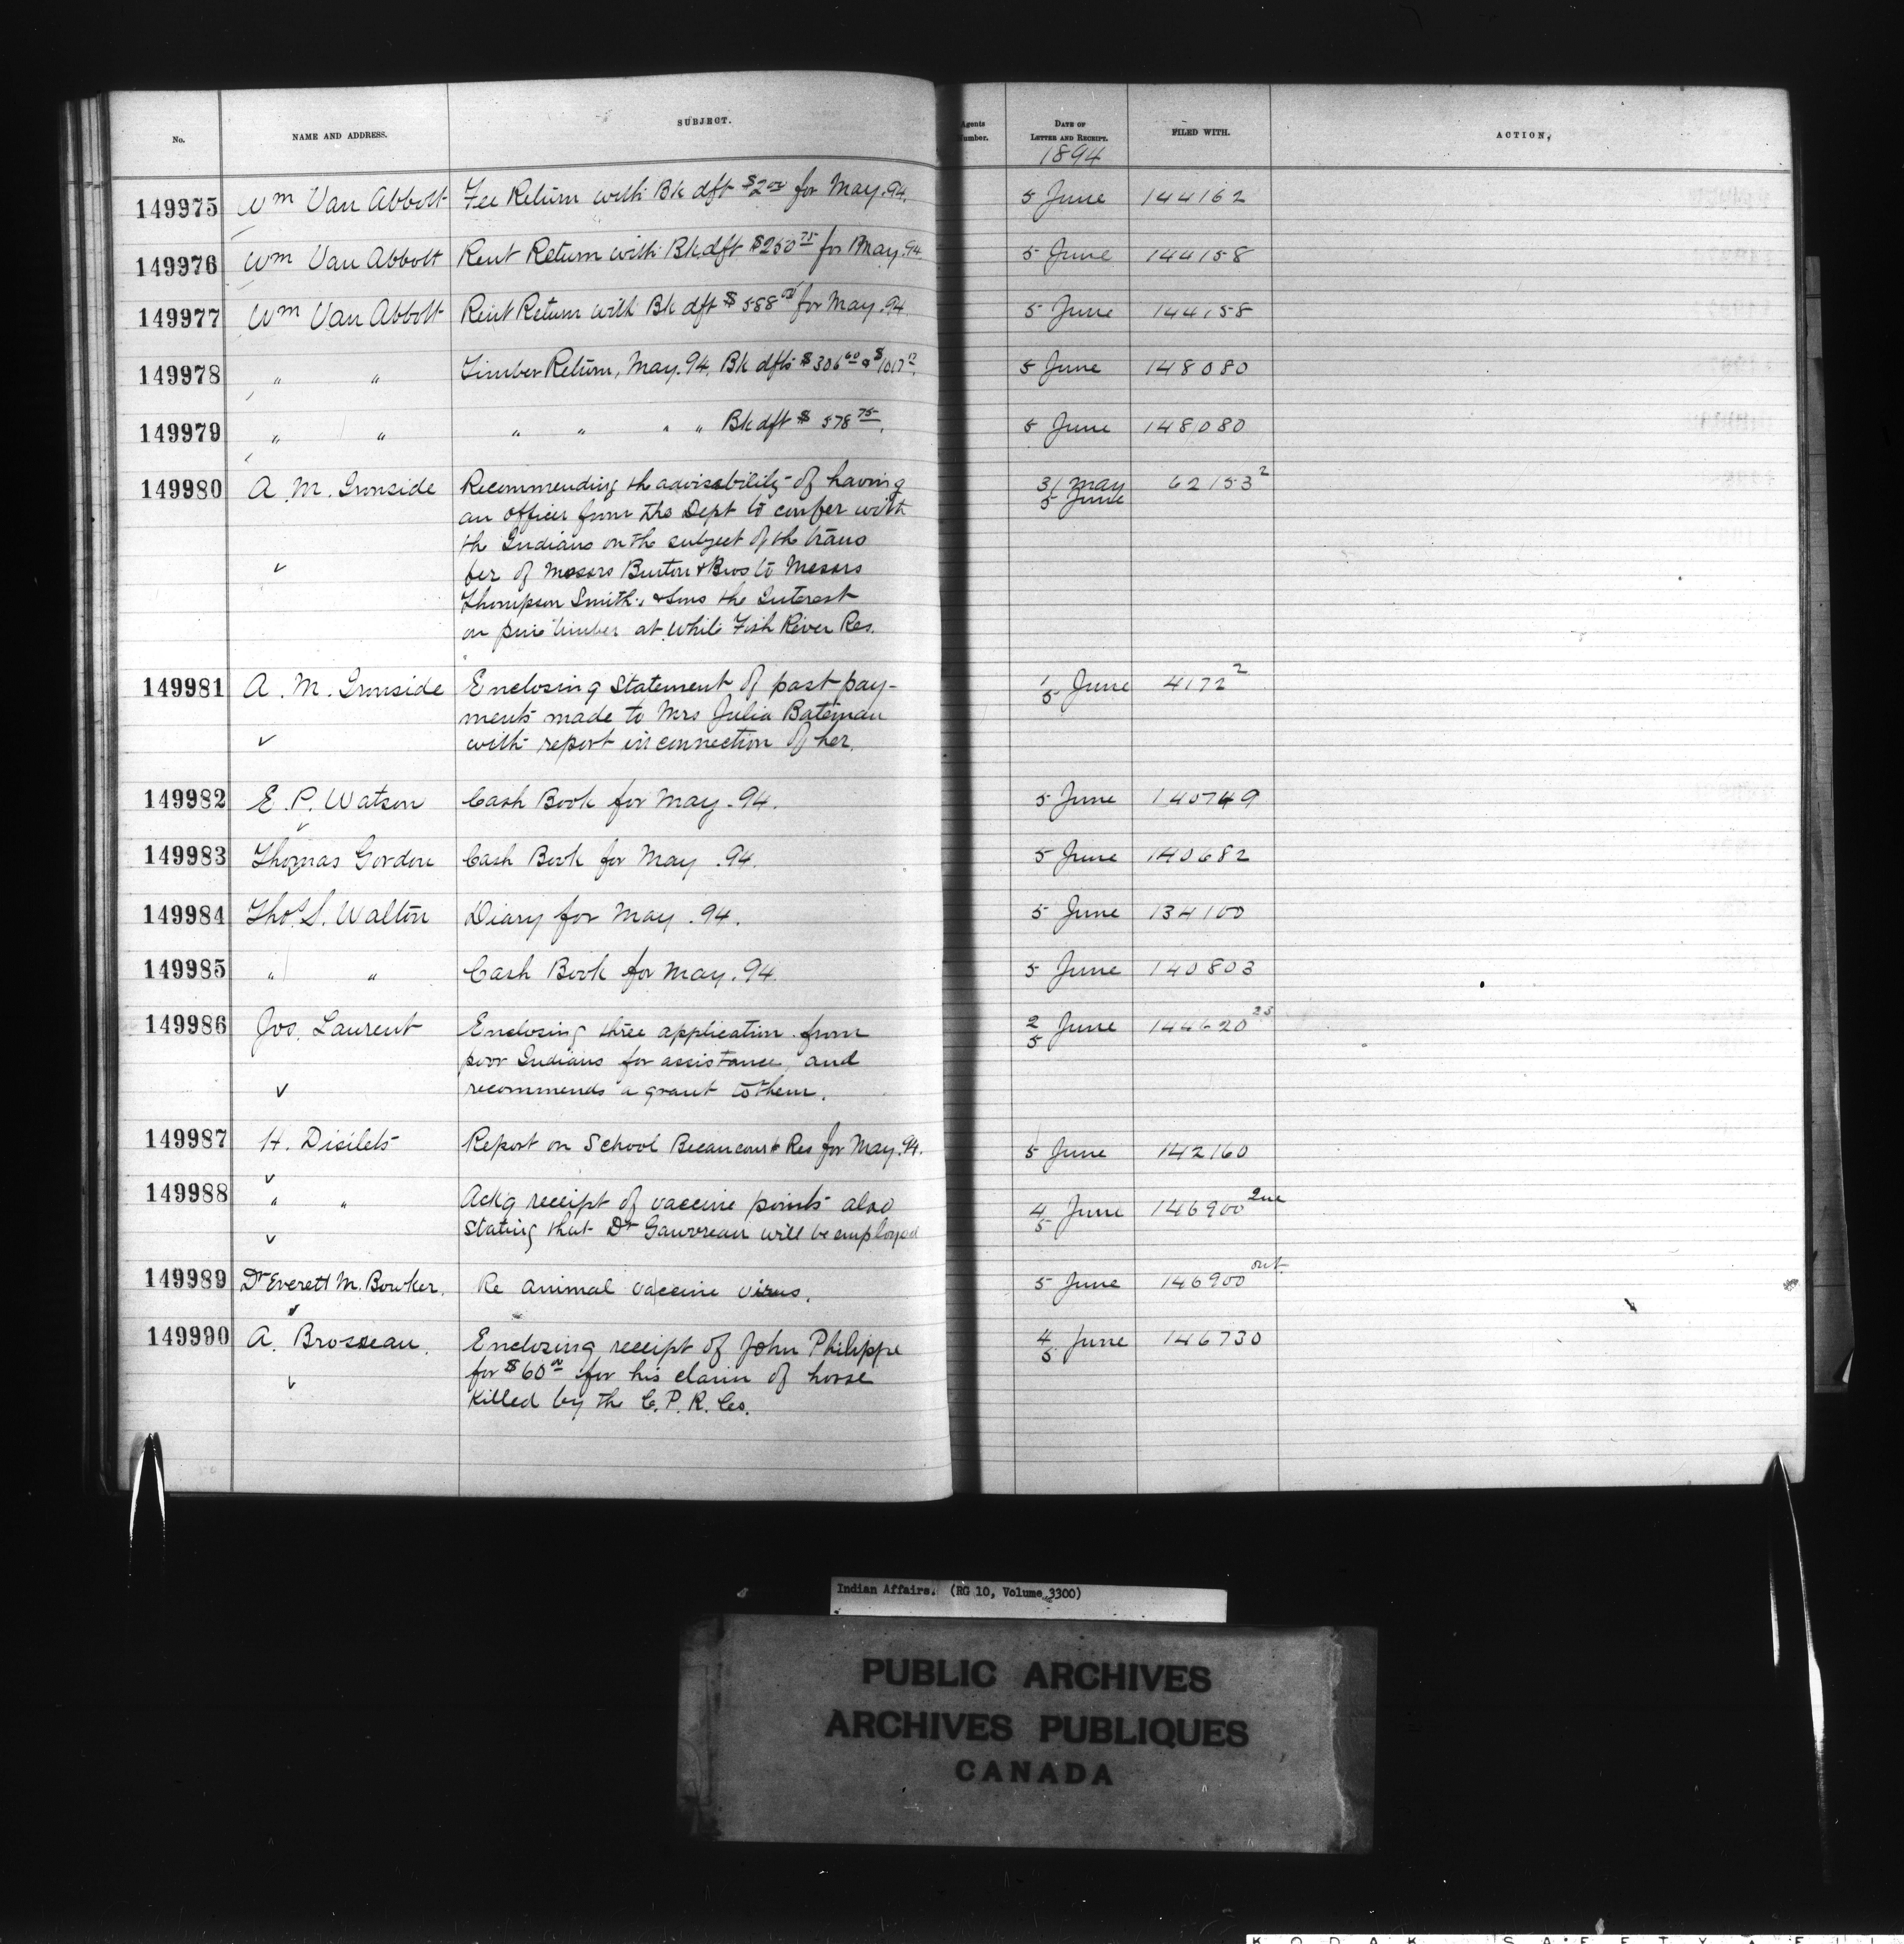 No. NAME AND ADDRESS. SUBJECT. Agents Number. DATE OF LETTER AND RECEIPT. FILED WITH. ACTION.
1894
149975 Wm Van Abbott Fee Return with Bk dft $2 00 for May.94. 5 June 144162
149976 Wm Van Abbott Rent Return with Bk dft $250 75 for May.94 5 June 144158
149977 Wm Van Abbott Rent Return with Bk dft $588 00 for May.94. 5 June 144158
149978 " " Timber Return, May.94. Bk dfts $306 60 & $1017 12. 5 June 148080
149979 " " " " " " Bk dft $ 578 75. 5 June 148080
149980 A. M. Ironside Recommending the advisability of having 31 May 62153 2
an officer from the Dept to confer with 5 June
the Indians on the subject of the trans
fer of Messrs Burton & Bros to Messrs
Thompson Smith & Sons the Interest
on pine timber at White Fish River Res.
149981 A. M. Ironside Enclosing Statement of past pay- 1/5 June 4172 2
ments made to Mrs Julia Bateman
with report in connection of her.
149982 E. P. Watson Cash Book for May .94. 5 June 140749
149983 Thomas Gordon Cash Book for May .94. 5 June 140682
149984 Thos. S. Walton Diary for May .94. 5 June 134100
149985 " " Cash Book for May .94. 5 June 140803
149986 Jos. Laurent Enclosing three application from 2/5 June 144620 25
poor Indians for assistance, and
recommends a grant to them.
149987 H. Disilets Report on School Becancourt Res for May.94. 5 June 142160
149988 " " Ackg receipt of vaccine points also 4/5 June 146900 2nd
stating that Dr Gauvreau will be employed
149989 Dr Everett M. Bowker. Re animal vaccine virus. 5 June 146900 out
149990 A. Brosseau. Enclosing receipt of John Philippe 4/5 June 146730
for $60 00 for his claim of horse
killed by the C. P. R. Co.
Indian Affairs. (RG 10, Volume 3300)
PUBLIC ARCHIVES
ARCHIVES PUBLIQUES
CANADA
KODAK SAFETY